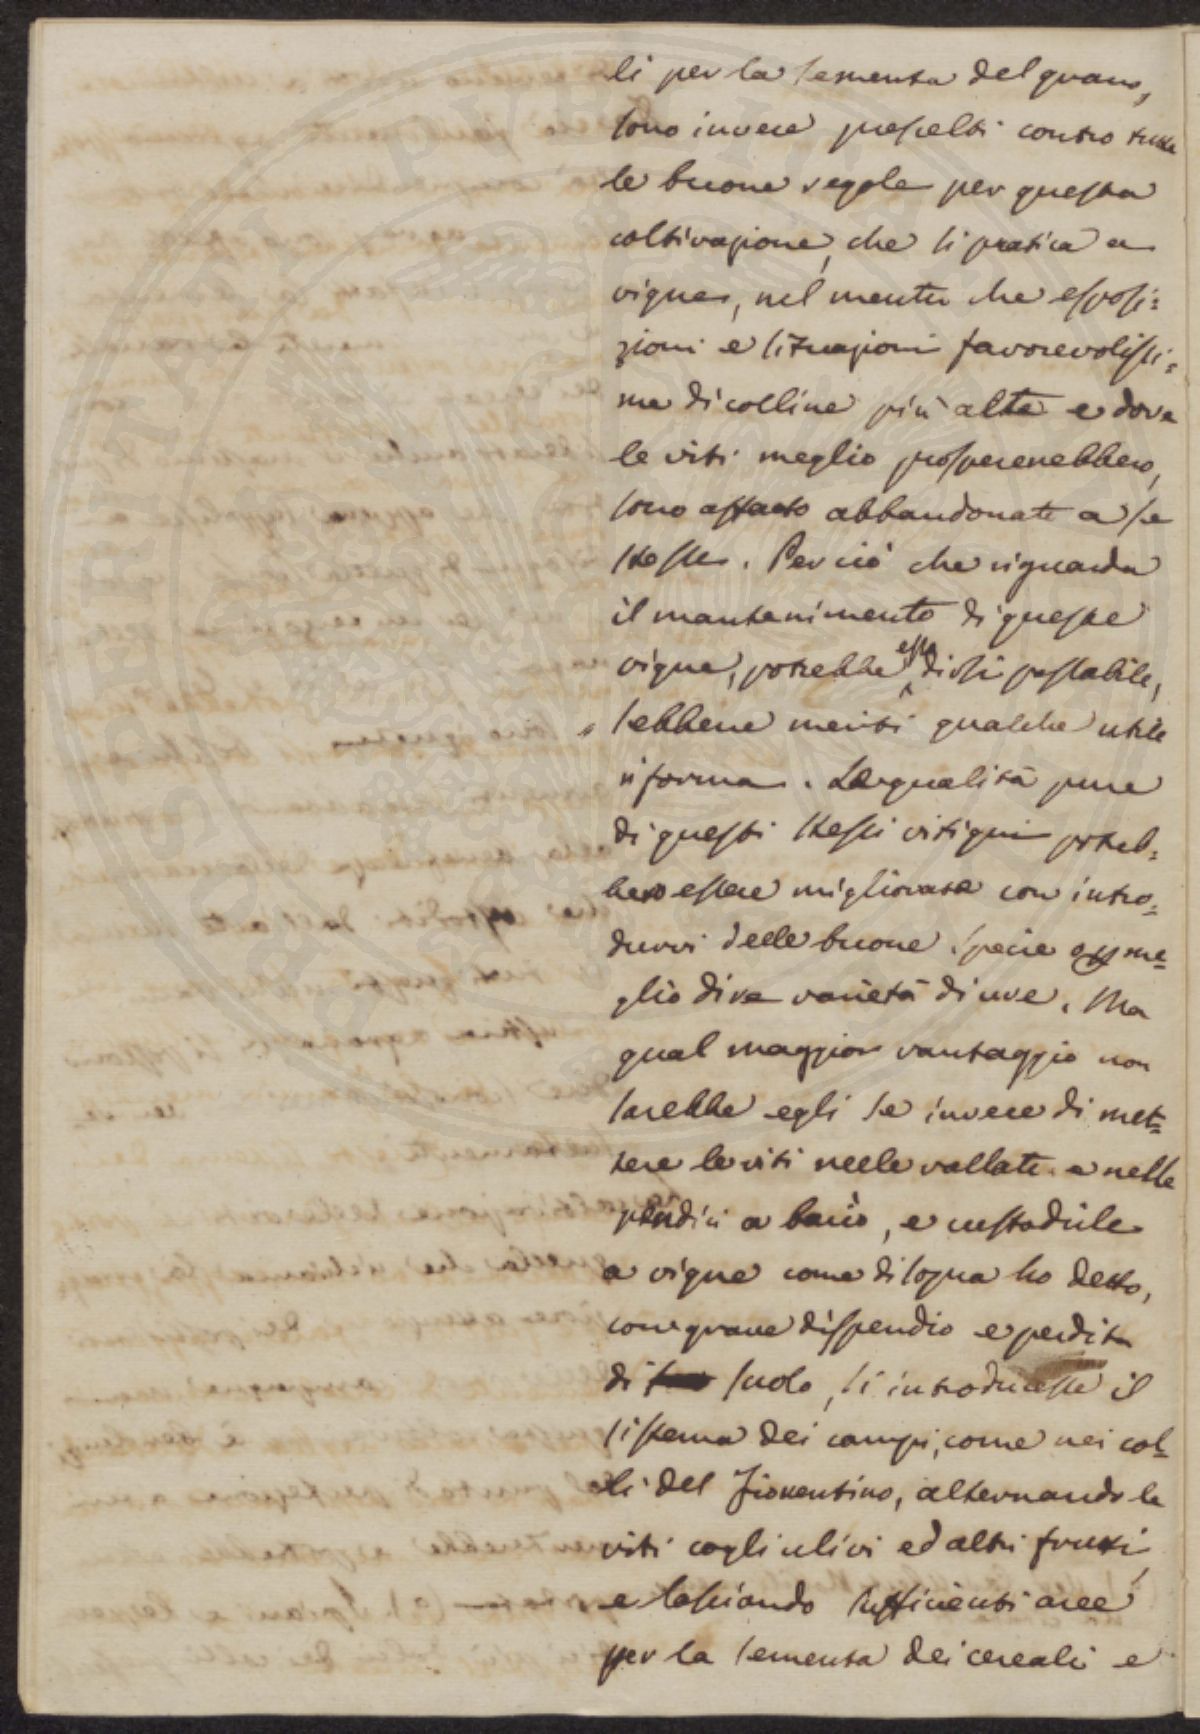 li per la sementa del grano,
sono invece prescelti contro tutte
le buone regole per questa
coltivazione, che si pratica a
vigne, nel mentre che esposi=
zioni e situazioni favorevolissi=
me di colline più alte e dove
le viti meglio prospererebbero,
sono affatto abbandonate a se
stesse. Perciò che riguarda
il mantenimento di queste
vigne, potrebbe esso dirsi passabile,
sebbene meriti qualche utile
riforma. La qualità pure
di questi stessi vitigni potreb=
bero essere migliorata con intro=
durvi delle buone specie o meglio
glio dire varietà di uve. Ma
qual maggior vantaggio non
sarebbe egli se invece di met=
tere le viti nelle vallate e nelle
pendici a bacìo, e custodirle
a vigne come di sopra ho detto,
con grave dispendio e perdita
di suolo, si introducesse il
sistema dei campi, come nei col=
li del Fiorentino, alternando le
viti cogli ulivi ed altri frutti,
e lasciando sufficienti aree
per la sementa dei cereali e